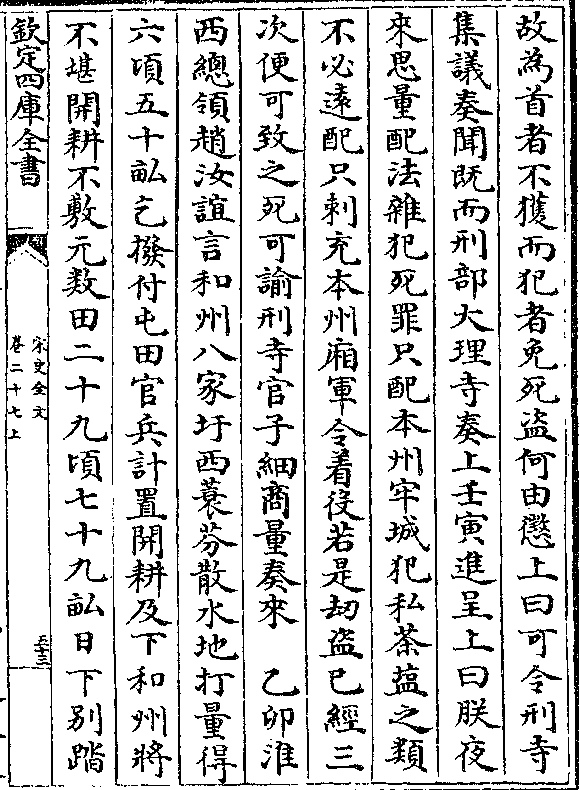 故為首者不獲而犯者免死盗何由懲上曰可令刑寺
集議奏聞既而刑部大理寺奏上壬寅進呈上曰朕夜
來思量配法雜犯死罪只配本州牢城犯私茶塩之類
不必逺配只刺充本州廂軍令着役若是刧盗已經三
次便可致之死可諭刑寺官子細商量奏來　乙卯淮
西總領趙汝誼言和州八家圩西蓑芬散水地打量得
六頃五十畝乞撥付屯田官兵計置開耕及下和州將
不堪開耕不敷元数田二十九頃七十九畝日下别踏
欽定四庫全書
宋史全文
卷二十七上
五十三